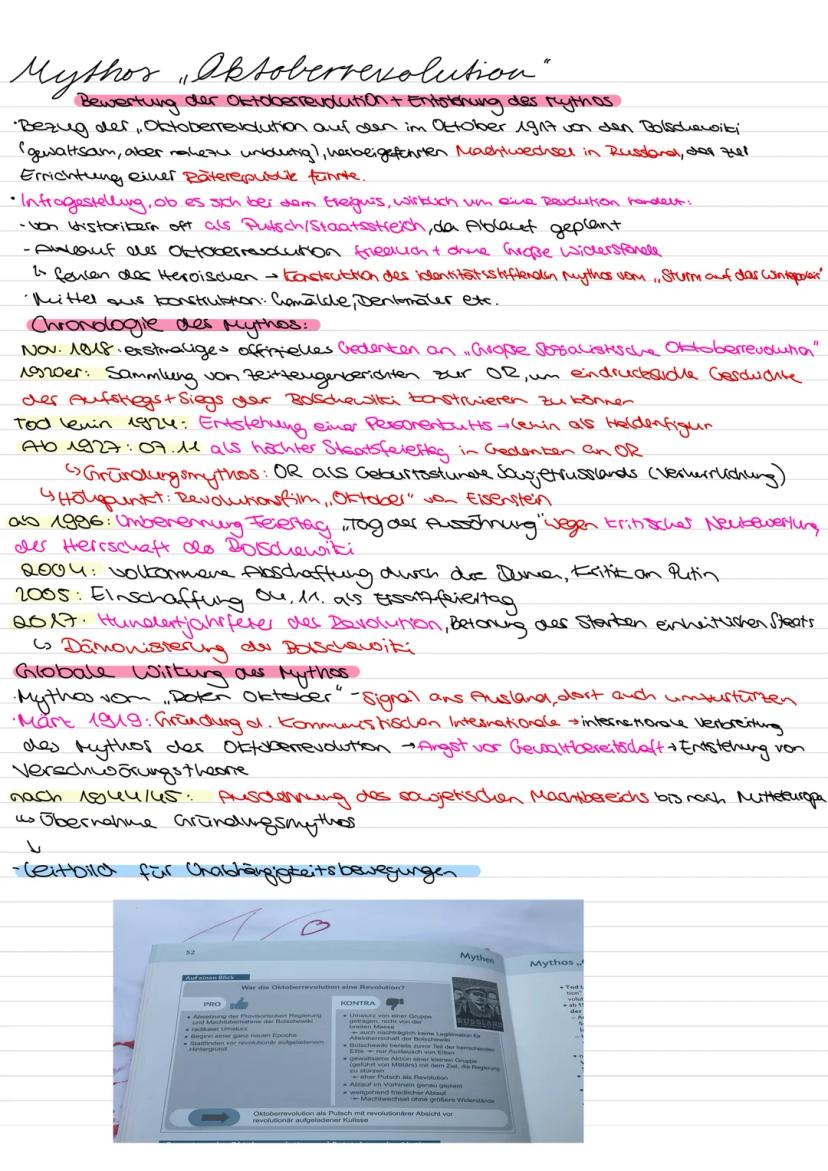 Mythos „Oktoberrevolution"
Bewertung der Oktoberrevolution + Entstehung des Mythos
· Bezug der „Oktoberrevolution auf den im Oktober 1917 von den Bolschewiki
(gewaltsam, aber nahezu unblutig), herbeigeführten Machtwechsel in Russland, der zur
Errichtung einer Räterepublik führte.
· Infragestellung, ob es sich bei dem Ereignis, wirklich um eine Revolution handelt:
- von Historikern oft als Putsch/Staatsstreich, da Ablauf geplant
- Ablauf der Oktoberrevolution friedlich + ohne Große Widerstände
↳ fehlen des Heroischen → Konstruktion des identitätsstiftenden Mythos vom „Sturm auf das Winterpalais"
· Mittel zur Konstruktion: Gemälde, Denkmäler etc.
Chronologie des Mythos:
Nov. 1918: erstmaliges offizielles Gedenken an „Große Sozialistische Oktoberrevolution"
1920er: Sammlung von Zeitzeugenberichten zur OR, um eindrucksvolle Geschichte
des Aufstiegs + Siegs der Bolschewiki konstruieren zu können
Tod Lenin 1924: Entstehung einer Personenkults → Lenin als Heldenfigur
Ab 1927: 07.11 als höchster Staatsfeiertag in Gedenken an OR
↳ Gründungsmythos: OR als Geburtsstunde Sowjetrusslands (Verherrlichung)
↳ Höhepunkt: Revolutionsfilm „Oktober" von Eisenstein
ab 1996: Umbenennung Feiertag „Tag der Aussöhnung" wegen kritischer Neubewertung
der Herrschaft der Bolschewiki
2004: vollkommene Abschaffung durch die Duma, Kritik an Putin
2005: Einschaffung 04.11. als Ersatzfeiertag
2017: Hundertjahrfeier der Revolution, Betonung des Starken einheitlichen Staats
↳ Dämonisierung der Bolschewiki
Globale Wirkung des Mythos
· Mythos vom „Roten Oktober" - Signal ans Ausland, dort auch umzustürzen
· März 1919: Gründung d. Kommunistischen Internationale → internationale Verbreitung
des Mythos der Oktoberrevolution → Angst vor Gewaltbereitschaft → Entstehung von
Verschwörungstheorie
nach 1944/45: Ausdehnung des sowjetischen Machtbereichs bis nach Mitteleuropa
↳ Übernahme Gründungsmythos
↓
- Leitbild für Unabhängigkeitsbewegungen
52
Mythen
Auf einen Blick
War die Oktoberrevolution eine Revolution?
PRO
• Absetzung der Provisorischen Regierung
und Machtübernahme der Bolschewiki
• radikaler Umsturz
• Beginn einer ganz neuen Epoche
• Stattfinden vor revolutionär aufgeladenem
Hintergrund
KONTRA
• Umsturz von einer Gruppe
getragen, nicht von der
breiten Masse
→ auch nachträglich keine Legitimation für
Alleinherrschaft der Bolschewiki
• Bolschewiki bereits zuvor Teil der herrschenden
Elite → nur Austausch von Eliten
• gewaltsame Aktion einer kleinen Gruppe
(geführt von Militärs) mit dem Ziel, die Regierung
zu stürzen
→ eher Putsch als Revolution
• Ablauf im Vorhinein genau geplant
• weitgehend friedlicher Ablauf
→ Machtwechsel ohne größere Widerstände
RUSSLAND
Oktoberrevolution als Putsch mit revolutionärer Absicht vor
revolutionär aufgeladener Kulisse
Mythos